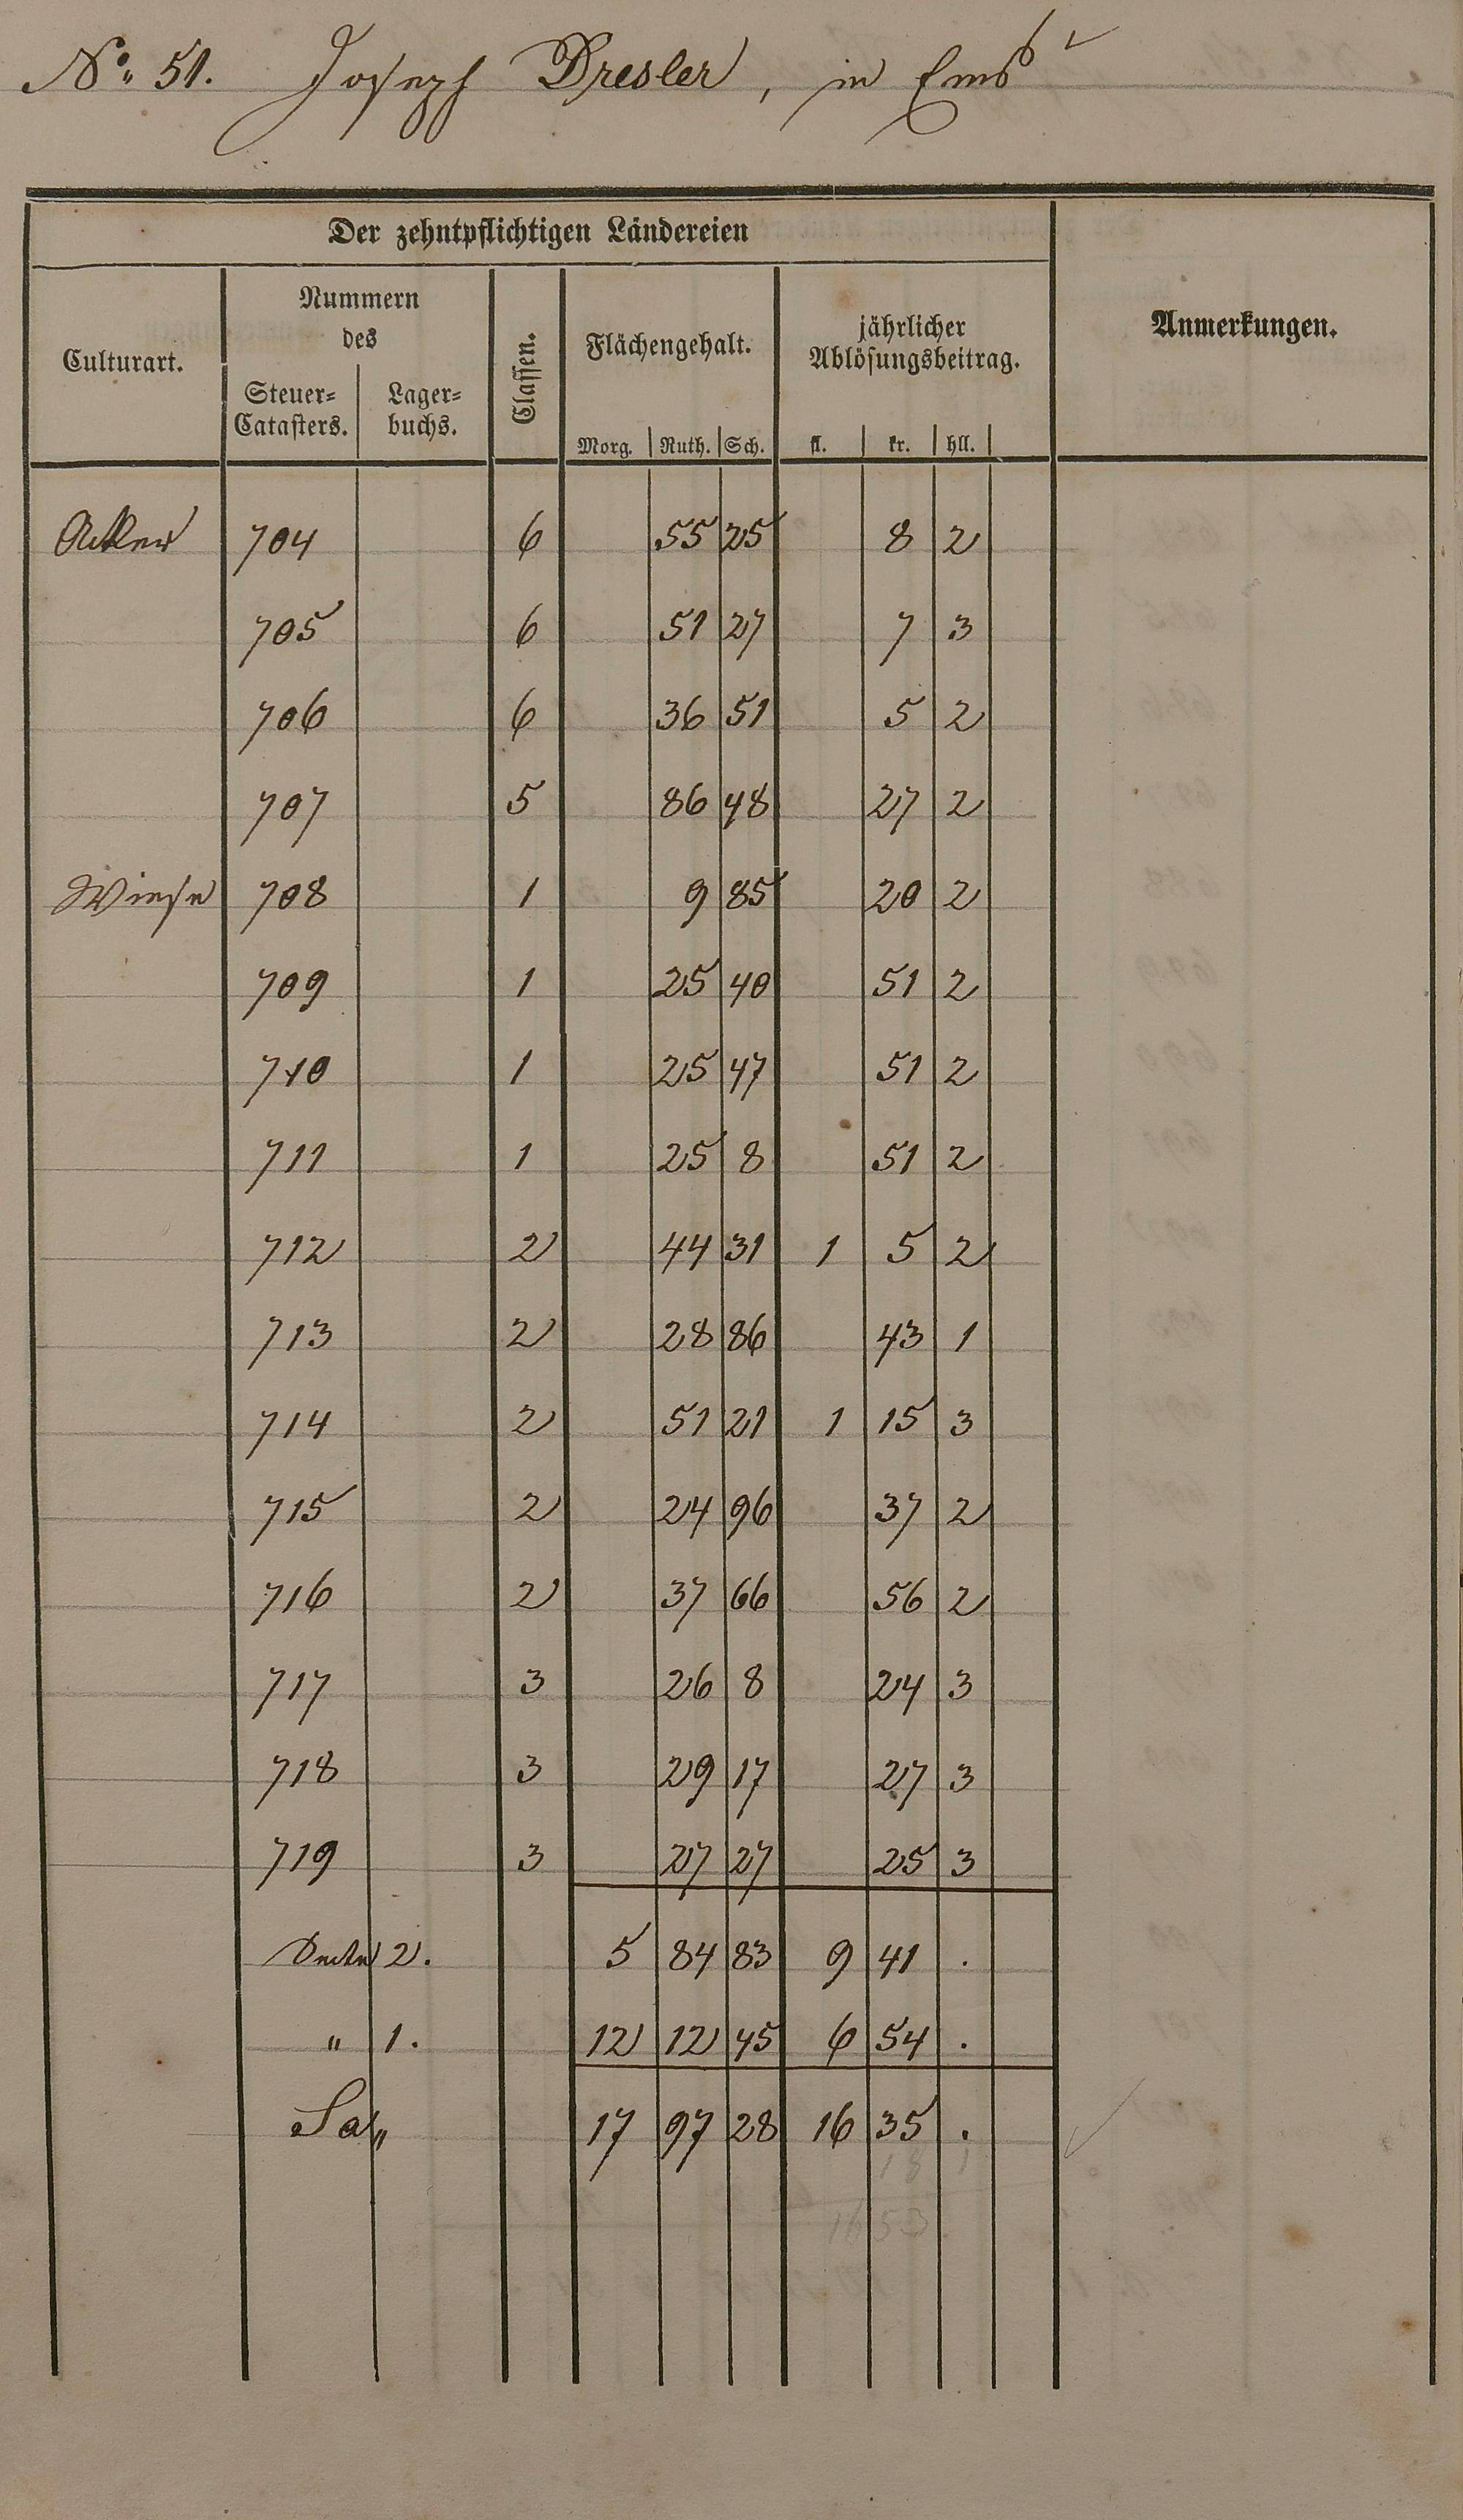 No. 51. Joseph Dresler, in Ems
Der zehntpflichtigen Ländereien
Culturart. Nummern des Steuer-Catasters. Lager-buchs. Classen. Flächengehalt. jährlicher Ablösungsbeitrag. Anmerkungen.
Morg. Ruth. Sch. fl. kr. hll.
Acker 704 6 55 25 8 2
705 6 51 27 7 3
706 6 36 51 5 2
707 5 86 48 27 2
Wiese 708 1 9 85 20 2
709 1 25 40 51 2
710 1 25 47 51 2
711 1 25 8 51 2
712 2 44 31 1 5 2
713 2 28 86 43 1
714 2 51 21 1 15 3
715 2 24 96 37 2
716 2 37 66 56 2
717 3 26 8 24 3
718 3 29 17 27 3
719 3 27 27 25 3
Seite 2. 5 84 83 9 41 .
" 1. 12 12 45 6 54 .
Sa" 17 97 28 16 35 .
18 1
16 53